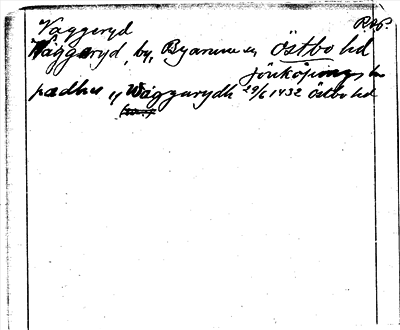 Vaggeryd RAP.
Waggeryd, by, Byarums sn Östbo hd
Jönköpings län
pædhus „ Waggarydh 29/6 1432 Östbo hd